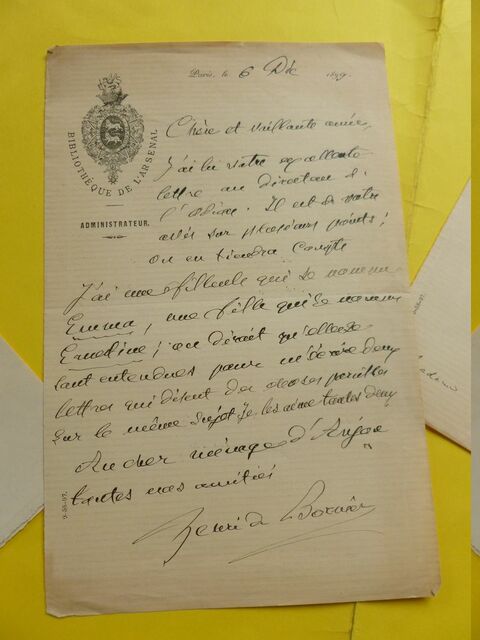 Paris, le 6 Déc 1899
BIBLIOTHÈQUE DE L'ARSENAL
ADMINISTRATEUR.
Chère et vaillante amie,
J'ai lu votre excellente
lettre au directeur de
l'Odéon. Il est de votre
avis sur plusieurs points ;
on en tiendra compte
J'ai une filleule qui se nomme
Emma, une fille qui se nomme
Ernestine ; on dirait qu'elles se
sont entendues pour m'écrire deux
lettres qui disent des choses pareilles
sur le même sujet. Je les aime toutes deux
Au cher ménage d'Anjou
toutes mes amitiés
Henri de Bornier